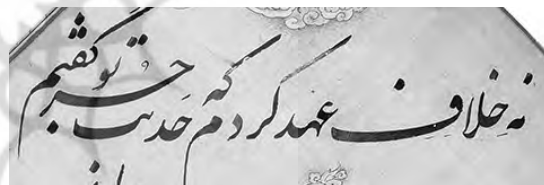 نه خلاف عهد کردم که حدیث جز تو گفتم